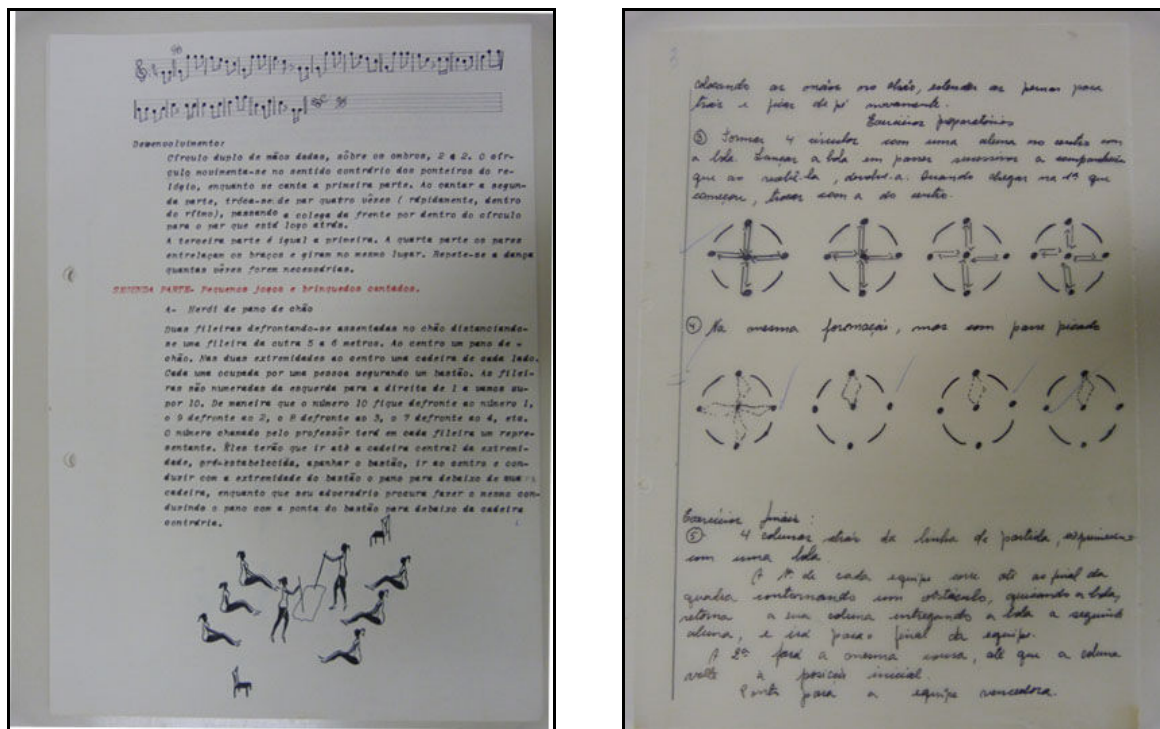 Desenvolvimento:
Círculo duplo de mãos dadas, sôbre os ombros, 2 a 2. O cír-
culo movimenta-se no sentido contrário dos ponteiros do re-
lógio, enquanto se canta a primeira parte. Ao cantar a segun-
da parte, tróca-se de par quatro vêses ( rápidamente, dentro
do rítmo), passando a colega da frente por dentro do círculo
para o par que está logo atrás.
A terceira parte é igual a primeira. A quarta parte os pares
entrelaçam os braços e giram no mesmo lugar. Repete-se a dança
quantas vêses forem necessárias.
SEGUNDA PARTE- Pequenos jogos e brinquedos cantados.
A- Herdi de pano de chão
Duas fileiras defrontando-se assentadas no chão distanciando-
se uma fileira da outra 5 a 6 metros. Ao centro um pano de
chão. Nas duas extremidades ao centro uma cadeira de cada lado.
Cada uma ocupada por uma pessoa segurando um bastão. As filei-
ras são numeradas da esquerda para a direita de 1 a vamos su-
por 10. De maneira que o número 10 fique defronte ao número 1,
o 9 defronte ao 2, o 8 defronte ao 3, o 7 defronte ao 4, etc.
O número chamado pelo professôr terá em cada fileira um repre-
sentante. Êles terão que ir até a cadeira central da extremi-
dade, pré-estabelecida, apanhar o bastão, ir ao centro e con-
duzir com a extremidade do bastão o pano para debaixo de sua
cadeira, enquanto que seu adversário procura fazer o mesmo con-
duzindo o pano com a ponta do bastão para debaixo da cadeira
contrária.
3
colocando as mãos no chão, estender as pernas para
trás e ficar de pé novamente.
Exercícios preparatórios
③ Formar 4 círculos com uma aluna no centro com
a bola. Lançar a bola em passes sucessivos a companheira
que ao recebê-la, devolve-a. Quando chegar na 1ª que
começou, trocar com a do centro.
④ Na mesma formação, mas com passe picado
Exercícios finais:
⑤ 4 colunas atrás da linha de partida,
com uma bola.
A 1ª de cada equipe corre até ao final da
quadra contornando um obstáculo, quicando a bola,
retorna a sua coluna entregando a bola a segunda
aluna, e irá para o final da equipe.
A 2ª fará a mesma coisa, até que a coluna
volte a posição inicial.
Ponto para a equipe vencedora.